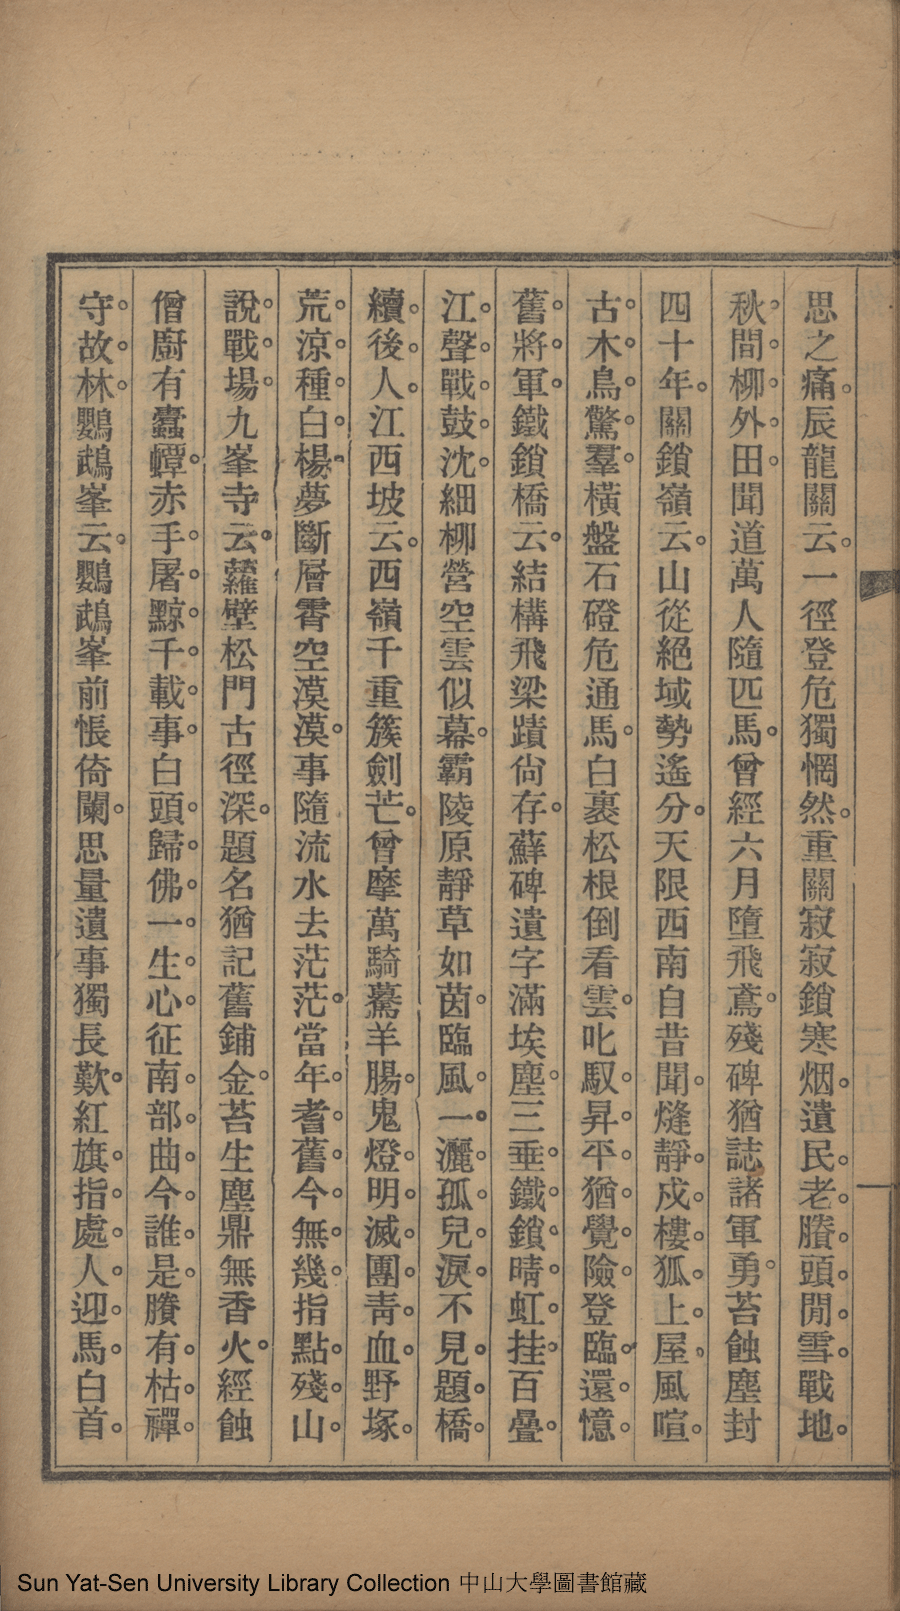 思之痛。辰龍關云。一徑登危獨惘然。重關寂寂鎖寒烟。遺民。老。賸。頭。閒。雪。戰地。
秋。間。柳。外。田。聞道萬人隨匹馬。曾經六月墮飛鳶。殘碑猶誌諸軍勇。苔蝕塵封
四十年。關鎖嶺云。山從絕域勢遙分。天限西南自昔聞。燧靜。戍。樓。狐。上。屋。風喧。
古。木。鳥。驚。羣。橫盤石磴危通馬。白裹松根倒看雲。叱馭。昇。平。猶。覺。險。登臨。還。憶。
舊。將。軍。鐵鎖橋云。結構飛梁蹟尙存。蘚碑遺字滿埃塵。三垂。鐵。鎖。晴。虹。挂。百疊。
江。聲。戰。鼓。沈。細柳營空雲似幕。霸陵原靜草如茵。臨風。一。灑。孤。兒。淚。不見。題。橋。
續。後。人。江西坡云。西嶺千重簇劍芒。曾摩萬騎驀羊腸。鬼燈。明。滅。團。靑。血。野塚。
荒。涼。種。白。楊。夢斷層霄空漠漠。事隨流水去茫茫。當年。耆。舊。今。無。幾。指點。殘。山。
說。戰。場。九峯寺云。蘿壁松門古徑深。題名猶記舊鋪金。苔生塵鼎無香火。經蝕
僧廚有蠹蟫。赤手。屠。黥。千。載。事。白頭。歸。佛。一。生。心。征南。部。曲。今。誰。是。賸有。枯。禪。
守。故。林。鸚鵡峯云。鸚鵡峯前悵倚闌。思量遺事獨長歎。紅旗。指。處。人。迎。馬。白首。
Sun Yat-Sen University Library Collection 中山大學圖書館藏